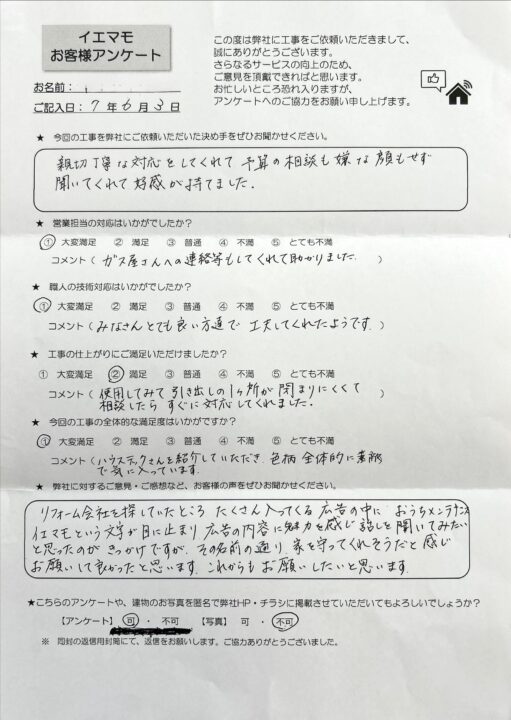 イエマモ
お客様アンケート
この度は弊社に工事をご依頼いただきまして、
誠にありがとうございます。
さらなるサービスの向上のため、
ご意見を頂戴できればと思います。
お忙しいところ恐れ入りますが、
アンケートへのご協力をお願い申し上げます。
お名前：
ご記入日：7年6月3日
★ 今回の工事を弊社にご依頼いただいた決め手をぜひお聞かせください。
親切丁寧な対応をしてくれて 予算の相談も嫌な顔もせず
聞いてくれて好感が持てました.
★ 営業担当の対応はいかがでしたか？
① 大変満足 ② 満足 ③ 普通 ④ 不満 ⑤ とても不満
コメント（ ガス屋さんへの連絡等もしてくれて助かりました. ）
★ 職人の技術対応はいかがでしたか？
① 大変満足 ② 満足 ③ 普通 ④ 不満 ⑤ とても不満
コメント（ みなさんとても良い方達で 工夫してくれたようです. ）
★ 工事の仕上がりにご満足いただけましたか？
① 大変満足 ② 満足 ③ 普通 ④ 不満 ⑤ とても不満
コメント（ 使用してみて 引き出しの1ヶ所が 閉まりにくくて
相談したら すぐに対応してくれました. ）
★ 今回の工事の全体的な満足度はいかがですか？
① 大変満足 ② 満足 ③ 普通 ④ 不満 ⑤ とても不満
コメント（ ハウステックさんを紹介していただき. 色柄 全体的に素敵
で気に入っています. ）
★ 弊社に対するご意見・ご感想など、お客様の声をぜひお聞かせください。
リフォーム会社を探していたところ たくさん入ってくる 広告の中に おうちメンテナンス
イエマモという文字が目に止まり 広告の内容に魅力を感じ 話しを聞いてみたい
と思ったのが きっかけですが. その名前の通り 家を守ってくれそうだと感じ
お願いして良かったと思います. これからも お願いしたいと思います.
★こちらのアンケートや、建物のお写真を匿名で弊社HP・チラシに掲載させていただいてもよろしいでしょうか？
【アンケート】 可 ・ 不可 【写真】 可 ・ 不可
※ 同封の返信用封筒にて、返信をお願いします。ご協力ありがとうございました。